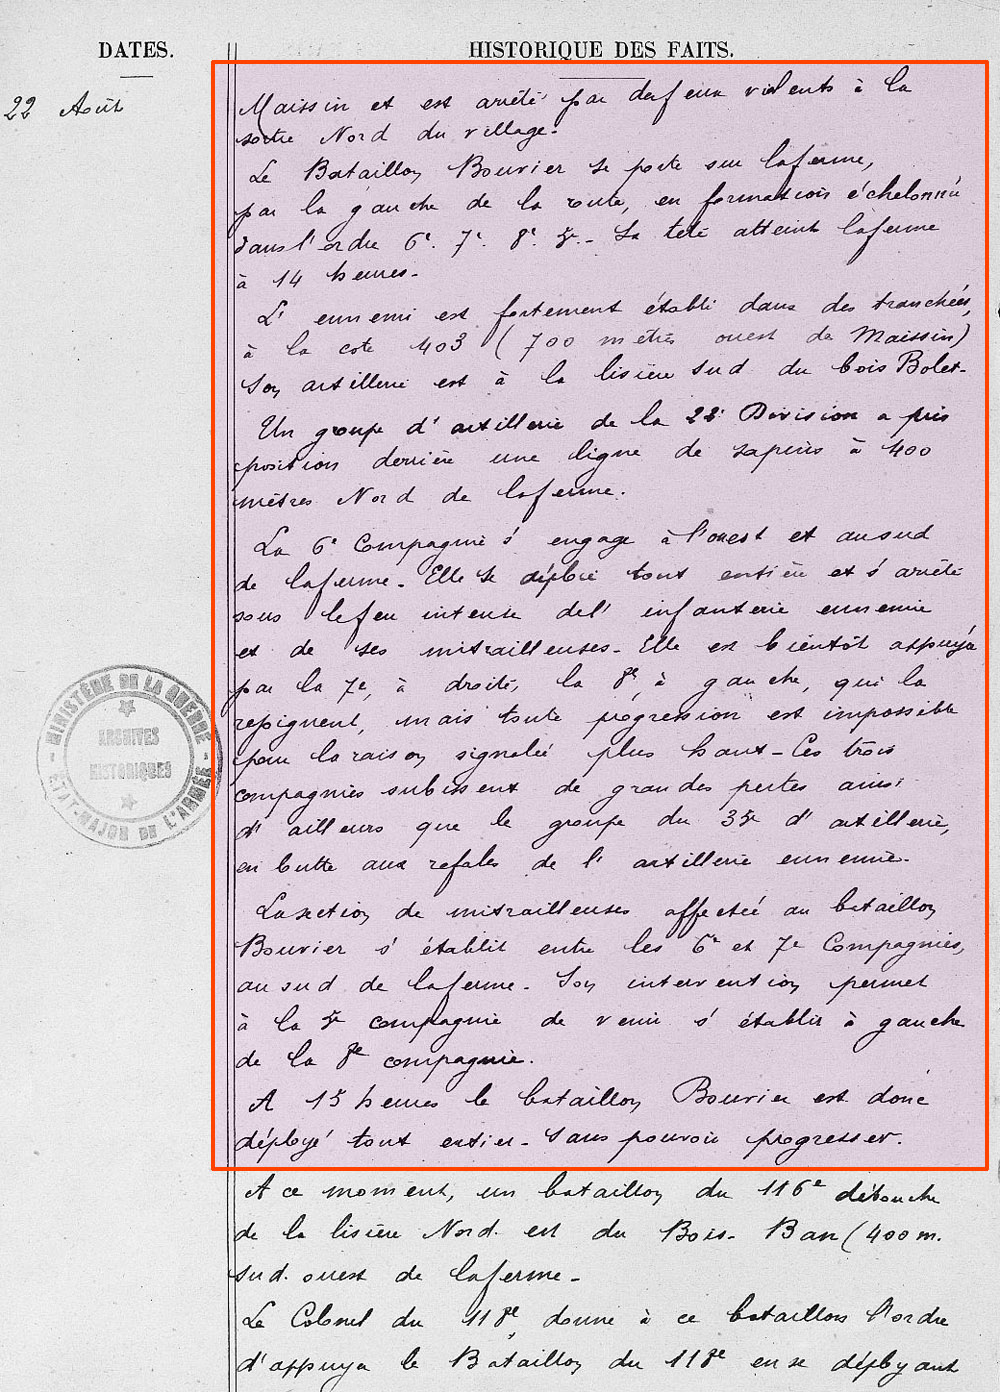 DATES.
HISTORIQUE DES FAITS.
22 Août
Maissin et est arrêté par des feux violents à la
sortie Nord du village.
Le Bataillon Bouvier se porte sur la ferme,
par la gauche de la route, en formation échelonnée
dans l'ordre 6e. 7e. 8e. 5e. - La tête atteint la ferme
à 14 heures.
L'ennemi est fortement établi dans des tranchées,
à la cote 403 (700 mètres ouest de Maissin)
Son artillerie est à la lisière sud du bois Bolet.
Un groupe d'artillerie de la 22e Division a pris
position derrière une ligne de sapins à 400
mètres Nord de la ferme.
La 6e Compagnie s'engage à l'ouest et au sud
de la ferme. Elle se déploie tout entière et s'arrête
sous le feu intense de l'infanterie ennemie
et de ses mitrailleuses. Elle est bientôt appuyée
par la 7e, à droite, la 8e, à gauche, qui la
rejoignent, mais toute progression est impossible
pour la raison signalée plus haut - Ces trois
compagnies subissent de grandes pertes ainsi
d'ailleurs que le groupe du 35e d'artillerie,
en butte aux rafales de l'artillerie ennemie.
La section de mitrailleuses affectée au bataillon
Bouvier s'établit entre les 6e et 7e Compagnies,
au sud de la ferme. Son intervention permet
à la 5e compagnie de venir s'établir à gauche
de la 8e compagnie.
A 15 heures le bataillon Bouvier est donc
déployé tout entier - Sans pouvoir progresser.
A ce moment, un bataillon du 116e débouche
de la lisière Nord. est du Bois-Ban (400 m.
Sud. ouest de la ferme -
Le Colonel du 118e, donne à ce bataillon l'ordre
d'appuyer le Bataillon du 118e en se déployant
MINISTÈRE DE LA GUERRE
ARCHIVES
HISTORIQUES
ÉTAT-MAJOR DE L'ARMÉE